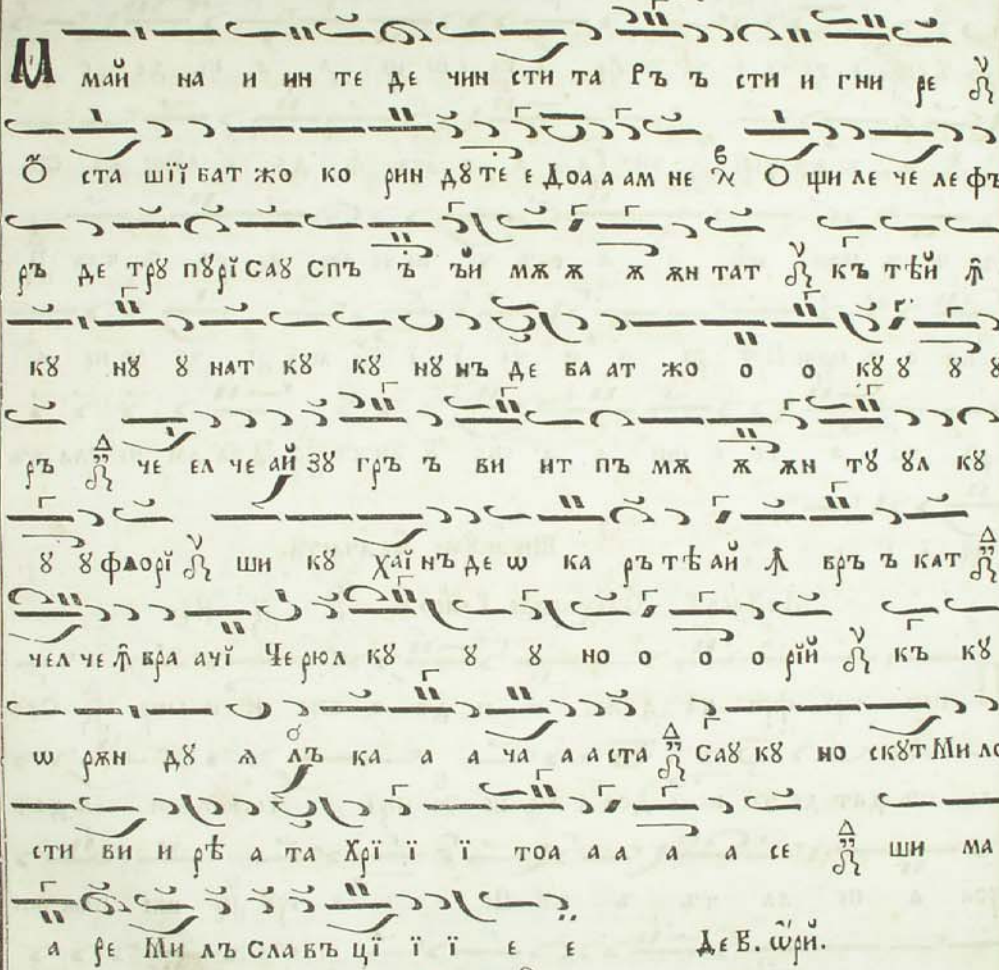 М май на и ин те де чин сти та Ръ ъ сти и гни ре
Ѻ ста шїї бат жо ко рин дꙋ те е Доа а ам не О ши ле че ле фъ
ръ де трꙋ пꙋрї Саꙋ спъ ъ ъй мѫ ѫ ѫ ѫн тат къ тѣй ꙟ
кꙋ нꙋ ꙋ нат кꙋ кꙋ нꙋ нъ де ба ат жо о о кꙋ ꙋ ꙋ ꙋ
ръ че ел че ай зꙋ гръ ъ ви ит пъ мѫ ѫ ѫн тꙋ ꙋл кꙋ
ꙋ ꙋ флорї ши кꙋ хаї нъ де ѡ ка ръ тѣ ай ꙟ връ ъ кат
чел че ꙟ вра ачї Че рюл кꙋ ꙋ ꙋ ꙋ но о о о рїй къ кꙋ
ѡ рѫн дꙋ ѧ лъ ка а а ча а а ста Саꙋ кꙋ но скꙋт Ми ло
сти ви и рѣ а та Хрї ї ї тоа а а а а се ши ма
а ре Ми лъ Сла въ цї ї ї е е Де в҃. ѡрй.